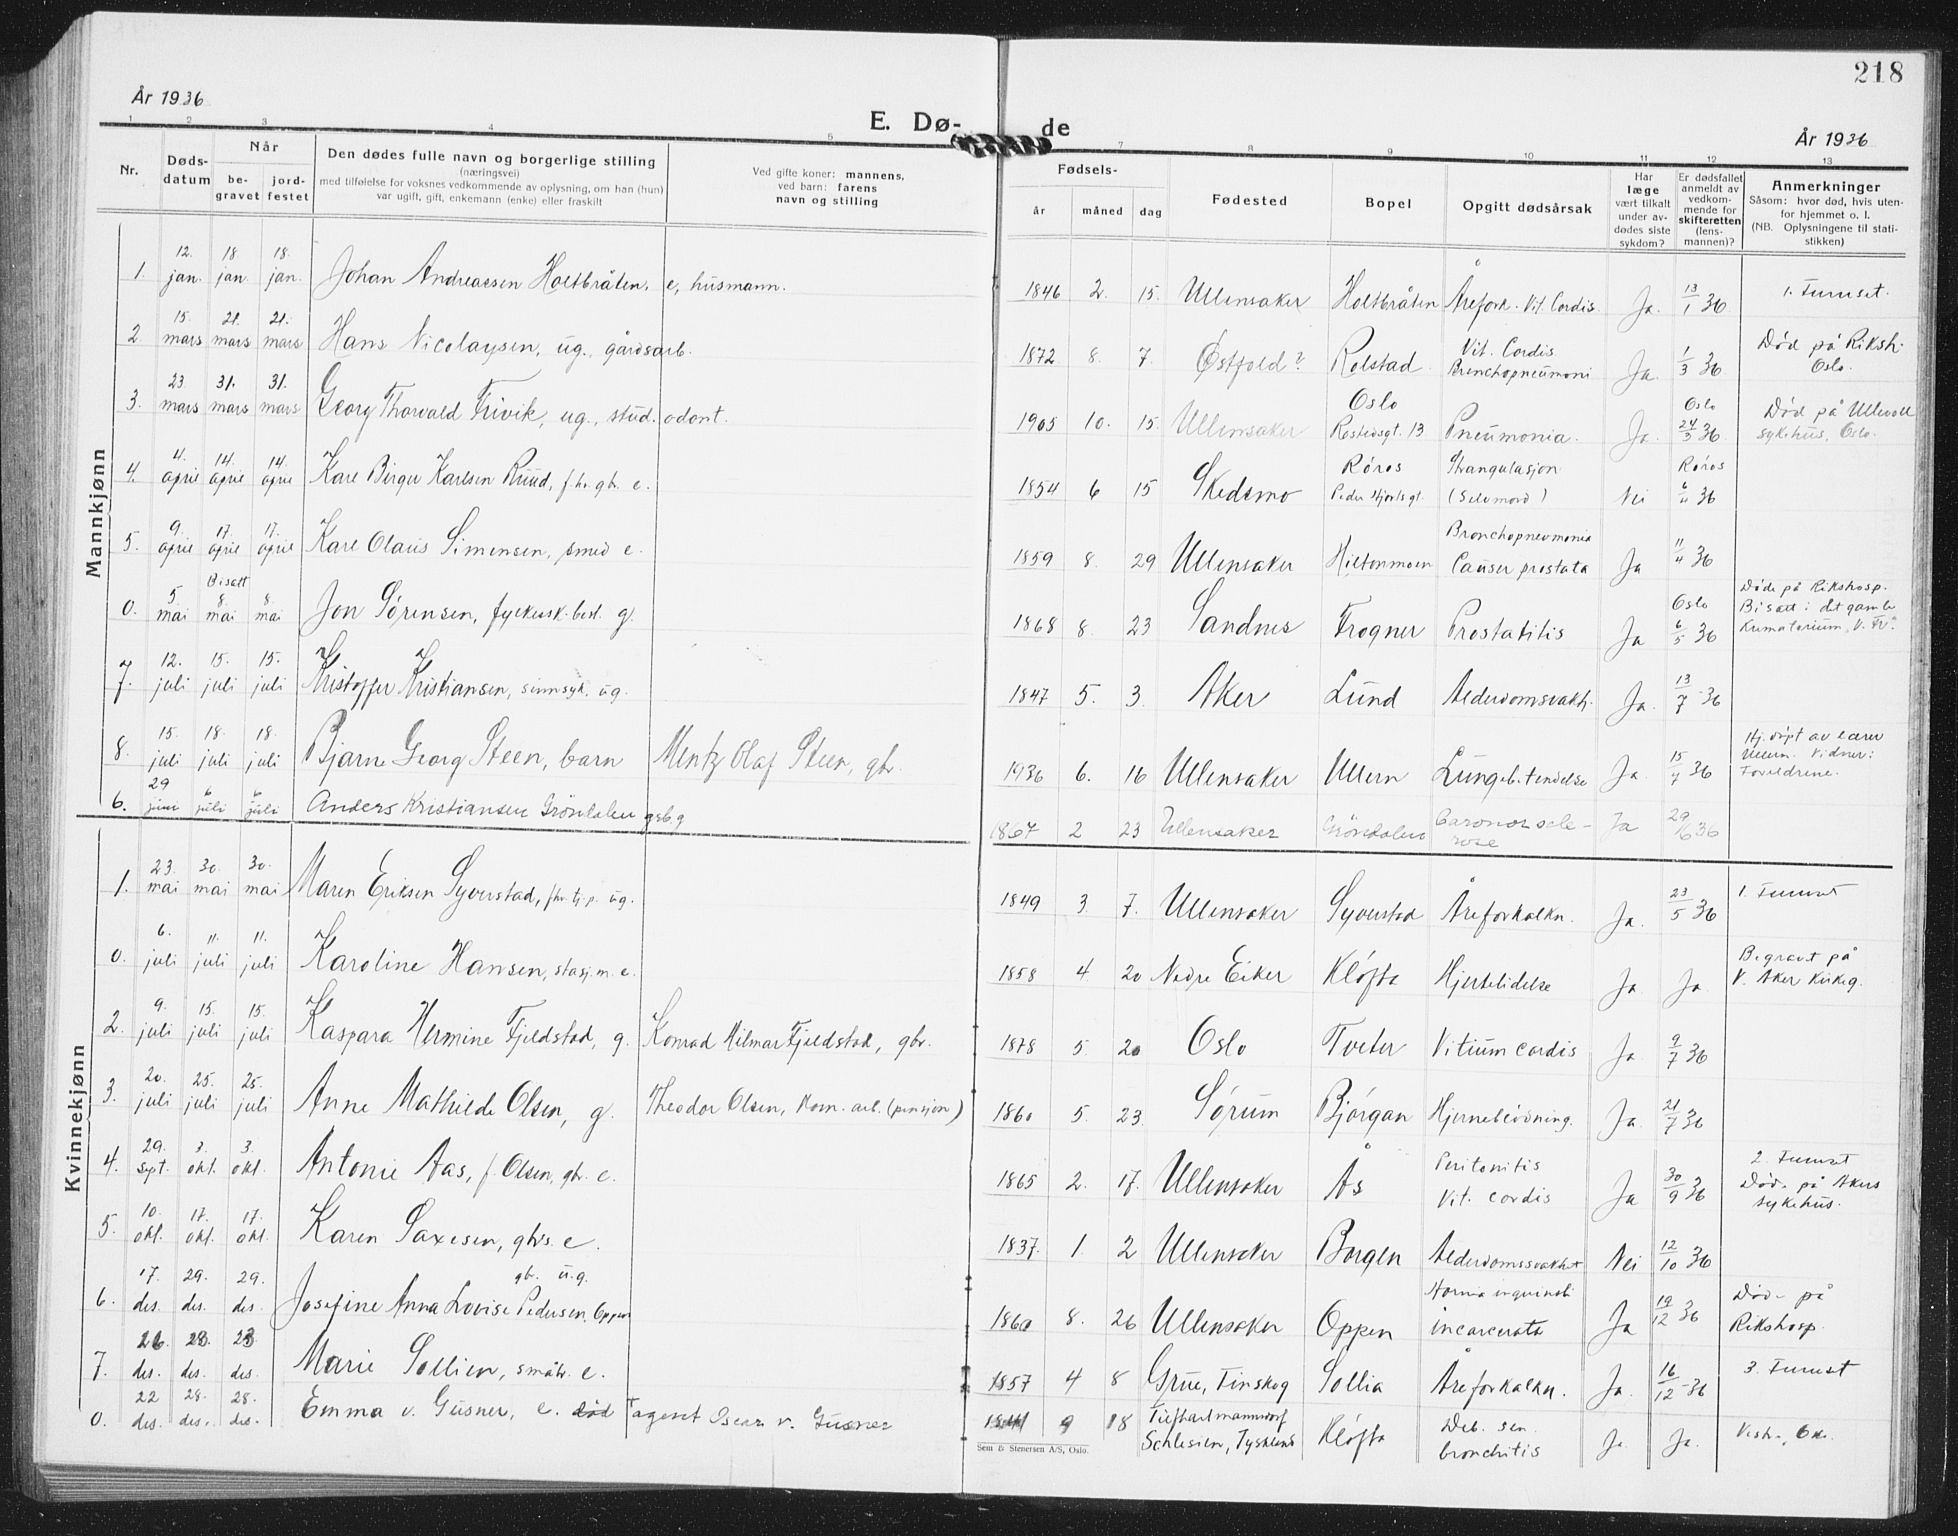 218
År 1936
E. Dø- de
År 1936
1 2 3 4 5 7 8 9 10 11 12 13
Nr.
Døds-
datum
Når
be-
gravet
jord-
festet
Den dødes fulle navn og borgerlige stilling
(næringsvei)
med tilføielse for voksnes vedkommende av oplysning, om han (hun)
var ugift, gift, enkemann (enke) eller fraskilt
Ved gifte koner: mannens,
ved barn: farens
navn og stilling
Fødsels-
år måned dag
Fødested
Bopel
Opgitt dødsårsak
Har
læge
vært tilkalt
under av-
dødes siste
sykdom?
Er dødsfallet
anmeldt av
vedkom-
mende for
skifteretten
(lens-
mannen)?
Anmerkninger
Såsom: hvor død, hvis uten-
for hjemmet o. l.
(NB. Oplysningene til stati-
stikken)
Mannkjønn
1. 12. jan. 18. jan. 18. jan. Johan Andreassen Holtbråten, e, husmann. 1846 2. 15. Ullensaker Holtbråten Årefork. Vit. Cordis. Ja. 13/1 36 1. Furuset.
2. 15. mars 21. mars 21. mars Hans Nicolaysen, ug., gårdsarb. 1872 8. 7. Østfold? Rolstad Vit. Cordis. Bronchopneumoni Ja. 1/3 36 Død på Riksh. Oslo.
3. 23. mars 31. mars 31. mars Georg Thorvald Frivik, ug., stud. odont. 1905 10. 15. Ullensaker Oslo Rostedsgt. 13 Pneumonia. Ja. Oslo 24/3 36 Død på Ullevoll sykehus, Oslo.
4. 4. april 14. april 14. april Karl Birger Karlsen Ruud, fhv. gbr. e. 1854 6 15 Skedsmo Røros Peder Hjortsgt. Strangulasjon (Selvmord) Nei Røros 6/4 36
5. 9. april 17. april 17. april Karl Olaus Simensen, smed e. 1859 8. 29 Ullensaker Hiltonmoen Bronchopneumonia Causer prostata Ja 11/4 36
0. 5 mai Bisatt 8. mai 8. mai Jon Sørensen, fylkessk.best. g. 1868 8. 23 Sandnes Frogner Prostatitis Ja Oslo 6/5 36 Døde på Rikshosp. Bisatt i det gamle Krematorium, "V. Fr."
7. 12. juli 15. juli 15. juli Kristoffer Kristiansen, sinnsyk, ug. 1847 5. 3. Aker Lund Alderdomssvakh. Ja. 13/7 36
8. 15. juli 18. juli 18. juli Bjarne Georg Steen, barn Mentz Olaf Steen, gbr. 1936 6. 16 Ullensaker Ullern Lungebetendelse Ja. 15/7 36 Hj.døpt av lærer Ullern. Vidner: Foreldrene.
6. 29 juni 6 juli 6 juli Anders Kristiansen Grøndalen gsb g 1867 2 23 Ullensaker Grøndalen Ja 29/6 36
Kvinnekjønn
1. 23. mai 30. mai 30. mai Maren Eriksen Syverstad, fhv. tj.p. ug. 1849 3 7. Ullensaker Syverstad Åreforkalkn. Ja. 23/5 36 1. Furuset
0. 6. juli 11. juli 11. juli Karoline Hansen, stasj.m. e. 1858 4 20 Nedre Eiker Kløfta Hjertelidelse Ja Ja. Begravet på V. Aker Kirkeg.
2. 9. juli 15. juli 15. juli Kaspara Hermine Fjeldstad, g. Konrad Hilmar Fjeldstad, gbr. 1878 5. 20 Oslo Tveter Vitium cordis Ja. 9/7 36
3. 20. juli 25. juli 25. juli Anne Mathilde Olsen, g. Theodor Olsen, kom. arb. (pensjon) 1860 5. 23. Sørum Bjørgan Hjerneblødning. Ja. 21/7 36
4. 29. sept. 3. okt. 3. okt. Antonie Aas, f. Olsen, gbr. e. 1865 2. 17. Ullensaker Ås Peritonitis Vit. cordis Ja 30/9 36 2. Furuset Død på Akers sykehus.
5. 10. okt. 17. okt. 17. okt. Karen Saxesen, gbrs. e. 1837. 1. 2 Ullensaker Borgen Alderdomssvakhet Nei 12/10 36
6. 17. des. 29. des. 29. des. Josefine Anna Lovise Pedersen, Oppen gbr. ug. 1860 8. 26 Ullensaker Oppen incarcerata Ja 19/12 36 Død på Rikshosp.
7. des. des. des. Marie Sollien, småbr. e. 1857 4 8 Grue, Finskog Sollia Åreforkalkn. Ja. 16/12 36 3. Furuset
0. 22 des. 28. des. 28. des. Emma v. Güsner, e. Oscar v. Güsner 9 18 Schlesien, Tyskland Kløfta Deb. sen. bronchitis Ja Ja.
Sem & Stenersen A/S, Oslo.